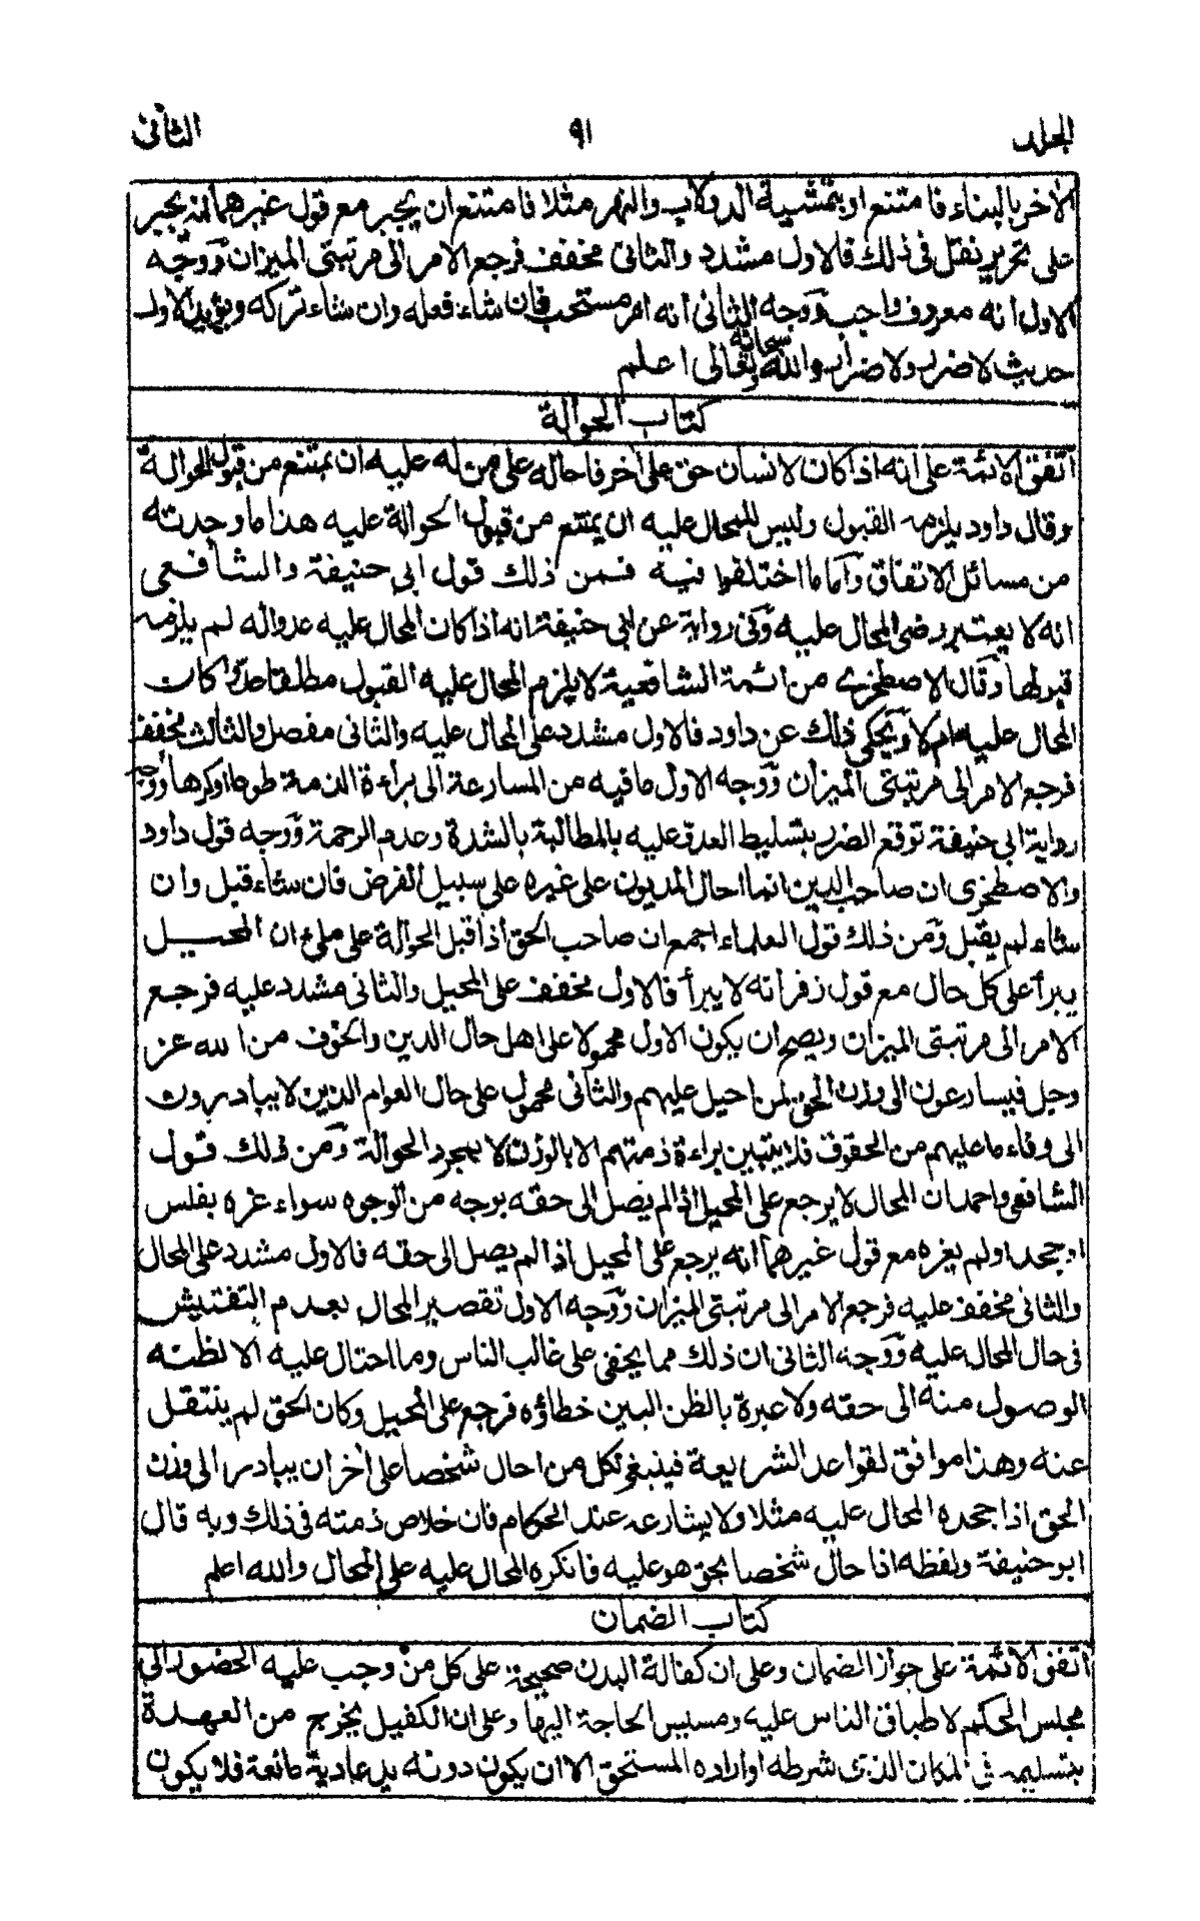 الجلد ٩١ الثانى
الاخر بالبناء فامتنع او بتمشية الدولاب والنهر مثلا فامتنع ان يجبر مع قول غيرهما انه يجبر
على تحرير نقل فى ذلك فالاول مشدد والثانى مخفف فرجع الامر الى مرتبتى الميزان ووجه
الاول انه معروف واجب ووجه الثانى انه امر مستحب فان شاء فعله وان شاء تركه ويؤيد الاول
حديث لا ضرر ولا ضرار والله سبحانه وتعالى اعلم
كتاب الحوالة
اتفق الائمة على انه اذا كان لانسان حق على اخر فاحاله على من له عليه ان يمتنع من قبول الحوالة
وقال داود يلزمه القبول وليس للمحال عليه ان يمتنع من قبول الحوالة عليه هذا ما وجدته
من مسائل الاتفاق واما ما اختلفوا فيه فمن ذلك قول ابى حنيفة والشافعى
انه لا يعتبر رضى المحال عليه وفى رواية عن ابى حنيفة انه اذا كان المحال عليه عدوا له لم يلزمه
قبولها وقال الاصطخرى من ائمة الشافعية لا يلزم المحال عليه القبول مطلقا عدوا كان
المحال عليه ام لا ويحكى ذلك عن داود فالاول مشدد على المحال عليه والثانى مفصل والثالث مخفف
فرجع الامر الى مرتبتى الميزان ووجه الاول ما فيه من المسارعة الى براءة الذمة طوعا او كرها ووجه
رواية ابى حنيفة توقع الضرر بتسليط العدو عليه بالمطالبة بالشدة وعدم الرحمة ووجه قول داود
والاصطخرى ان صاحب الدين انما احال المديون على غيره على سبيل الفرض فان شاء قبل وان
شاء لم يقبل ومن ذلك قول العلماء اجمع ان صاحب الحق اذا قبل الحوالة على ملئ ان المحيل
يبرأ على كل حال مع قول زفر انه لا يبرأ فالاول مخفف على المحيل والثانى مشدد عليه فرجع
الامر الى مرتبتى الميزان ويصح ان يكون الاول محمولا على اهل حال الدين والخوف من الله عز
وجل فيسارعون الى وزن الحق لمن احيل عليهم والثانى محمول على حال العوام الذين لا يبادرون
الى وفاء ما عليهم من الحقوق فلا يتبين براءة ذمتهم الا بالوزن لا بمجرد الحوالة ومن ذلك قول
الشافعى واحمد ان المحال لا يرجع على المحيل اذا لم يصل الى حقه بوجه من الوجوه سواء غره بفلس
او جحد او لم يغره مع قول غيرهما انه يرجع على المحيل اذا لم يصل الى حقه فالاول مشدد على المحال
والثانى مخفف عليه فرجع الامر الى مرتبتى الميزان ووجه الاول تقصير المحال بعدم التفتيش
فى حال المحال عليه ووجه الثانى ان ذلك مما يخفى على غالب الناس وما احتال عليه الا لظنه
الوصول منه الى حقه ولا عبرة بالظن البين خطاؤه فرجع على المحيل وكان الحق لم ينتقل
عنه وهذا موافق لقواعد الشريعة فينبغى لكل من احال شخصا على اخر ان يبادر الى وزن
الحق اذا جحده المحال عليه مثلا ولا يشارعه عند الحكام فان خلاص ذمته فى ذلك وبه قال
ابو حنيفة ولفظه اذا حال شخصا بحق هو عليه فانكره المحال عليه على المحال والله اعلم
كتاب الضمان
اتفق الائمة على جواز الضمان وعلى ان كفالة البدن صحيحة على كل من وجب عليه الحضور الى
مجلس الحكم لاطباق الناس عليه ومسيس الحاجة اليها وعلى ان الكفيل يخرج من العهدة
بتسليمه فى المكان الذى شرطه او اراده المستحق الا ان يكون دونه يد عادية مانعة فلا يكون